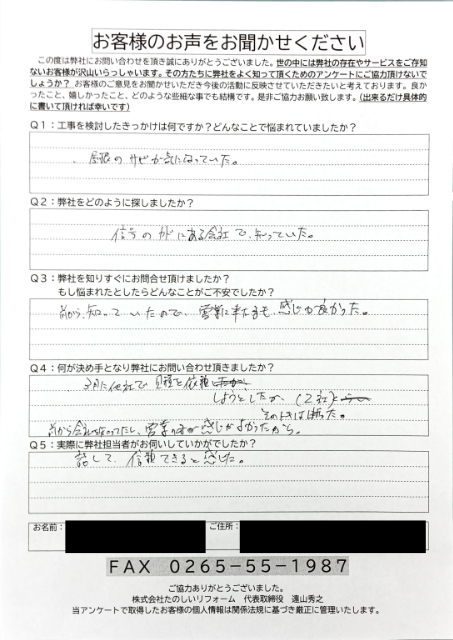 お客様のお声をお聞かせください
この度は弊社にお問い合わせを頂き誠にありがとうございました。世の中には弊社の存在やサービスをご存知
ないお客様が沢山いらっしゃいます。その方たちに弊社をよく知って頂くためのアンケートにご協力頂けないで
しょうか？ お客様のご意見をお聞かせいただき今後の活動に反映させていただきたいと考えております。良か
ったこと、嬉しかったこと、どのような些細な事でも結構です。是非ご協力お願い致します。（出来るだけ具体的
に書いて頂ければ幸いです）
Q1：工事を検討したきっかけは何ですか？どんなことで悩まれていましたか？
屋根のサビが気になっていた。
Q2：弊社をどのように探しましたか？
信号のカドにある会社で、知っていた。
Q3：弊社を知りすぐにお問合せ頂けましたか？
もし悩まれたとしたらどんなことがご不安でしたか？
前から、知っていたので、営業に来た も、感じが良かった。
Q4：何が決め手となり弊社にお問い合わせ頂きましたか？
他社で見積を依頼
しようとしたが、（2社）
そのときは断った。
前から 営業の方が感じがよかったから。
Q5：実際に弊社担当者がお伺いしていかがでしたか？
話して、信頼できると感じた。
お名前：
ご住所：
FAX 0265-55-1987
ご協力ありがとうございました。
株式会社たのしいリフォーム 代表取締役 遠山秀之
当アンケートで取得したお客様の個人情報は関係法規に基づき厳正に管理いたします。